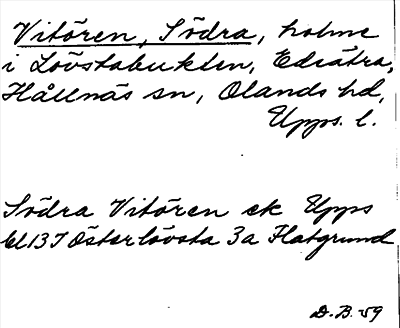 Vitören, Södra, holme
i Lövstabukten, Edsätra,
Hållnäs sn, Olands hd,
Upps. l.
Södra Vitören ek Upps
bl 137 Österlövsta 3a Flatgrund
D.B. 59